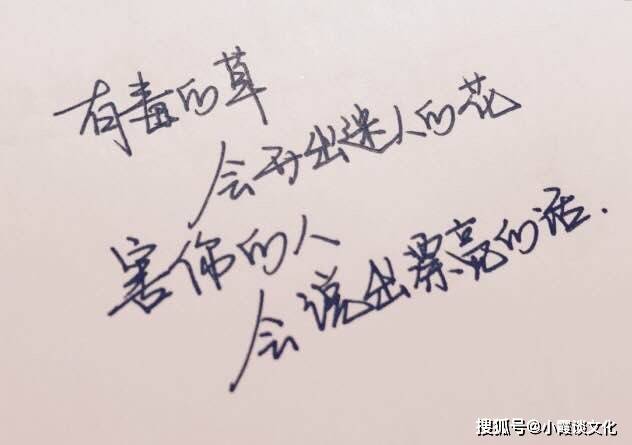 有毒的草
会开出迷人的花
害你的人
会说出漂亮的话.
搜狐号@小霞谈文化